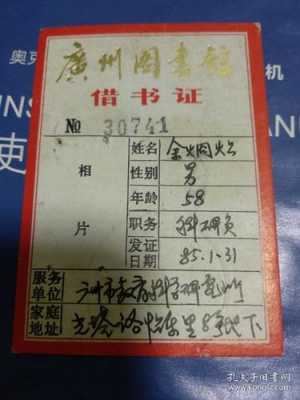 奥克
机
NS
史
廣州图書館
借书证
№ 30741
相片
姓名
性别 男
年龄 58
职务 科研员
发证日期 85.1.31
服务单位 广州市教育科学研究所
家庭地址
孔夫子旧书网